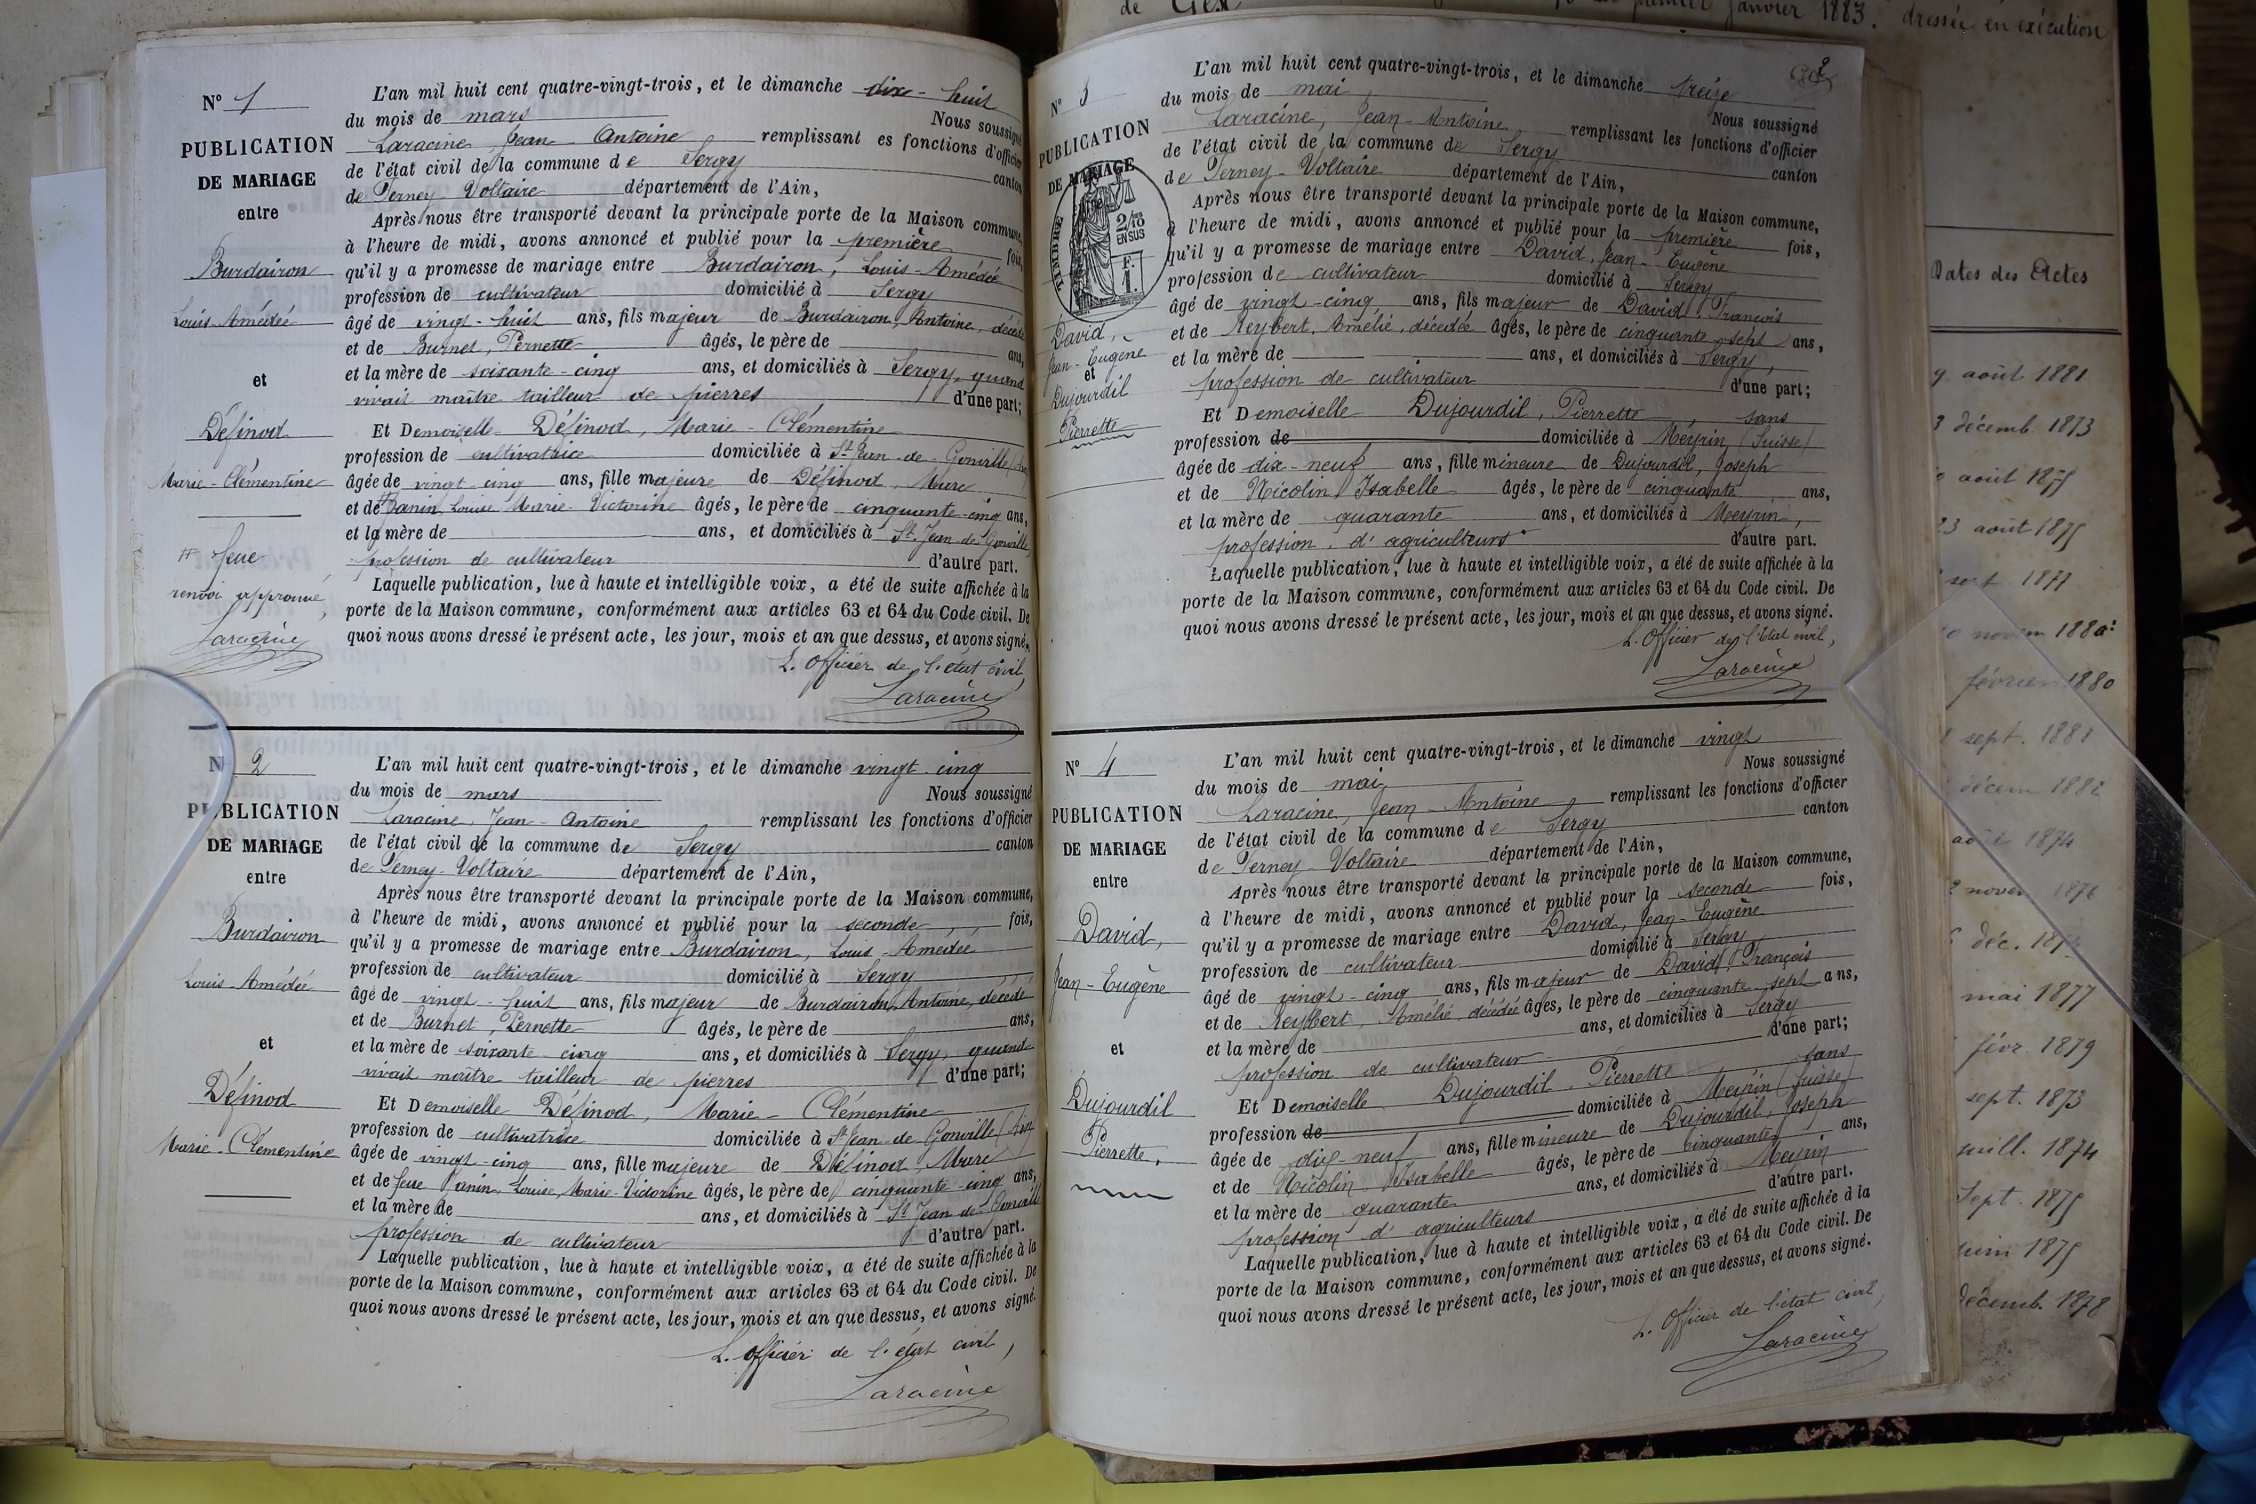 N° 1
PUBLICATION
DE MARIAGE
entre
Burdairon
Louis Amédée
et
Définod
Marie-Clémentine
# feue
renvoi approuvé,
Laracine
L'an mil huit cent quatre-vingt-trois, et le dimanche dix-huit
du mois de mars Nous soussigné
Laracine, Jean Antoine remplissant es fonctions d'officier
de l'état civil de la commune de Sergy canton
de Ferney-Voltaire département de l'Ain,
Après nous être transporté devant la principale porte de la Maison commune,
à l'heure de midi, avons annoncé et publié pour la première fois,
qu'il y a promesse de mariage entre Burdairon, Louis-Amédée
profession de cultivateur domicilié à Sergy
âgé de vingt-huit ans, fils majeur de Burdairon, Antoine, décédé
et de Burnet, Pernette âgés, le père de ans,
et la mère de soixante-cinq ans, et domiciliés à Sergy, quand
vivait maître tailleur de pierres d'une part;
Et Demoiselle Définod, Marie-Clémentine
profession de cultivatrice domiciliée à St Jean-de-Gonville (Ain)
âgée de vingt-cinq ans, fille majeure de Définod, Marc
et de # Panin, Louise Marie-Victorine âgés, le père de cinquante-cinq ans,
et la mère de ans, et domiciliés à St Jean-de-Gonville,
profession de cultivateur d'autre part.
Laquelle publication, lue à haute et intelligible voix, a été de suite affichée à la
porte de la Maison commune, conformément aux articles 63 et 64 du Code civil. De
quoi nous avons dressé le présent acte, les jour, mois et an que dessus, et avons signé.
L'officier de l'état civil,
Laracine
N° 2
PUBLICATION
DE MARIAGE
entre
Burdairon
Louis-Amédée
et
Définod
Marie-Clémentine
L'an mil huit cent quatre-vingt-trois, et le dimanche vingt-cinq
du mois de mars Nous soussigné
Laracine, Jean-Antoine remplissant les fonctions d'officier
de l'état civil de la commune de Sergy canton
de Ferney-Voltaire département de l'Ain,
Après nous être transporté devant la principale porte de la Maison commune,
à l'heure de midi, avons annoncé et publié pour la seconde fois,
qu'il y a promesse de mariage entre Burdairon, Louis-Amédée
profession de cultivateur domicilié à Sergy
âgé de vingt-huit ans, fils majeur de Burdairon, Antoine, décédé
et de Burnet, Pernette âgés, le père de ans,
et la mère de soixante-cinq ans, et domiciliés à Sergy, quand
vivait maître tailleur de pierres d'une part;
Et Demoiselle Définod, Marie-Clémentine
profession de cultivatrice domiciliée à St Jean-de-Gonville (Ain)
âgée de vingt-cinq ans, fille majeure de Définod, Marc
et de feue Panin, Louise, Marie-Victorine âgés, le père de cinquante-cinq ans,
et la mère de ans, et domiciliés à St Jean-de-Gonville
profession de cultivateur d'autre part.
Laquelle publication, lue à haute et intelligible voix, a été de suite affichée à la
porte de la Maison commune, conformément aux articles 63 et 64 du Code civil. De
quoi nous avons dressé le présent acte, les jour, mois et an que dessus, et avons signé.
L'officier de l'état civil,
Laracine
2
N° 3
PUBLICATION
DE MARIAGE
TIMBRE
2/10 EN SUS
F.
1.
David,
Jean-Eugène
et
Dujourdil
Pierrette
L'an mil huit cent quatre-vingt-trois, et le dimanche treize
du mois de mai Nous soussigné
Laracine, Jean-Antoine remplissant les fonctions d'officier
de l'état civil de la commune de Sergy canton
de Ferney-Voltaire département de l'Ain,
Après nous être transporté devant la principale porte de la Maison commune,
à l'heure de midi, avons annoncé et publié pour la première fois,
qu'il y a promesse de mariage entre David, Jean-Eugène
profession de cultivateur domicilié à Sergy
âgé de vingt-cinq ans, fils majeur de David, François
et de Reybert, Amélie, décédée âgés, le père de cinquante-sept ans,
et la mère de ans, et domiciliés à Sergy,
profession de cultivateur d'une part;
Et Demoiselle Dujourdil, Pierrette, sans
profession de domiciliée à Meyrin, (Suisse)
âgée de dix-neuf ans, fille mineure de Dujourdil, Joseph
et de Nicolin Isabelle âgés, le père de cinquante ans,
et la mère de quarante ans, et domiciliés à Meyrin,
profession d'agriculteurs d'autre part.
Laquelle publication, lue à haute et intelligible voix, a été de suite affichée à la
porte de la Maison commune, conformément aux articles 63 et 64 du Code civil. De
quoi nous avons dressé le présent acte, les jour, mois et an que dessus, et avons signé.
L'Officier de l'état civil,
Laracine
N° 4
PUBLICATION
DE MARIAGE
entre
David,
Jean-Eugène
et
Dujourdil
Pierrette,
L'an mil huit cent quatre-vingt-trois, et le dimanche vingt
du mois de mai Nous soussigné
Laracine, Jean-Antoine remplissant les fonctions d'officier
de l'état civil de la commune de Sergy canton
de Ferney-Voltaire département de l'Ain,
Après nous être transporté devant la principale porte de la Maison commune,
à l'heure de midi, avons annoncé et publié pour la seconde fois,
qu'il y a promesse de mariage entre David, Jean-Eugène
profession de cultivateur domicilié à Sergy
âgé de vingt-cinq ans, fils majeur de David, François
et de Reybert, Amélie, décédée âgés, le père de cinquante-sept ans,
et la mère de ans, et domiciliés à Sergy
profession de cultivateur d'une part;
Et Demoiselle Dujourdil, Pierrette sans
profession de domiciliée à Meyrin (Suisse)
âgée de dix-neuf ans, fille mineure de Dujourdil, Joseph
et de Nicolin Isabelle âgés, le père de cinquante ans,
et la mère de quarante ans, et domiciliés à Meyrin
profession d'agriculteurs d'autre part.
Laquelle publication, lue à haute et intelligible voix, a été de suite affichée à la
porte de la Maison commune, conformément aux articles 63 et 64 du Code civil. De
quoi nous avons dressé le présent acte, les jour, mois et an que dessus, et avons signé.
L'Officier de l'état civil,
Laracine
de Gex premier janvier 1883. dressée en exécution
Dates des Actes
9 août 1881
3 décemb. 1873
août 1875
23 août 1875
sept. 1877
novem 1880
février 1880
sept. 1881
décem 1882
août 1874
novem 1876
déc. 187
mai 1877
févr. 1879
sept. 1873
juill. 1874
Sept. 1875
juin 1875
décemb. 1878